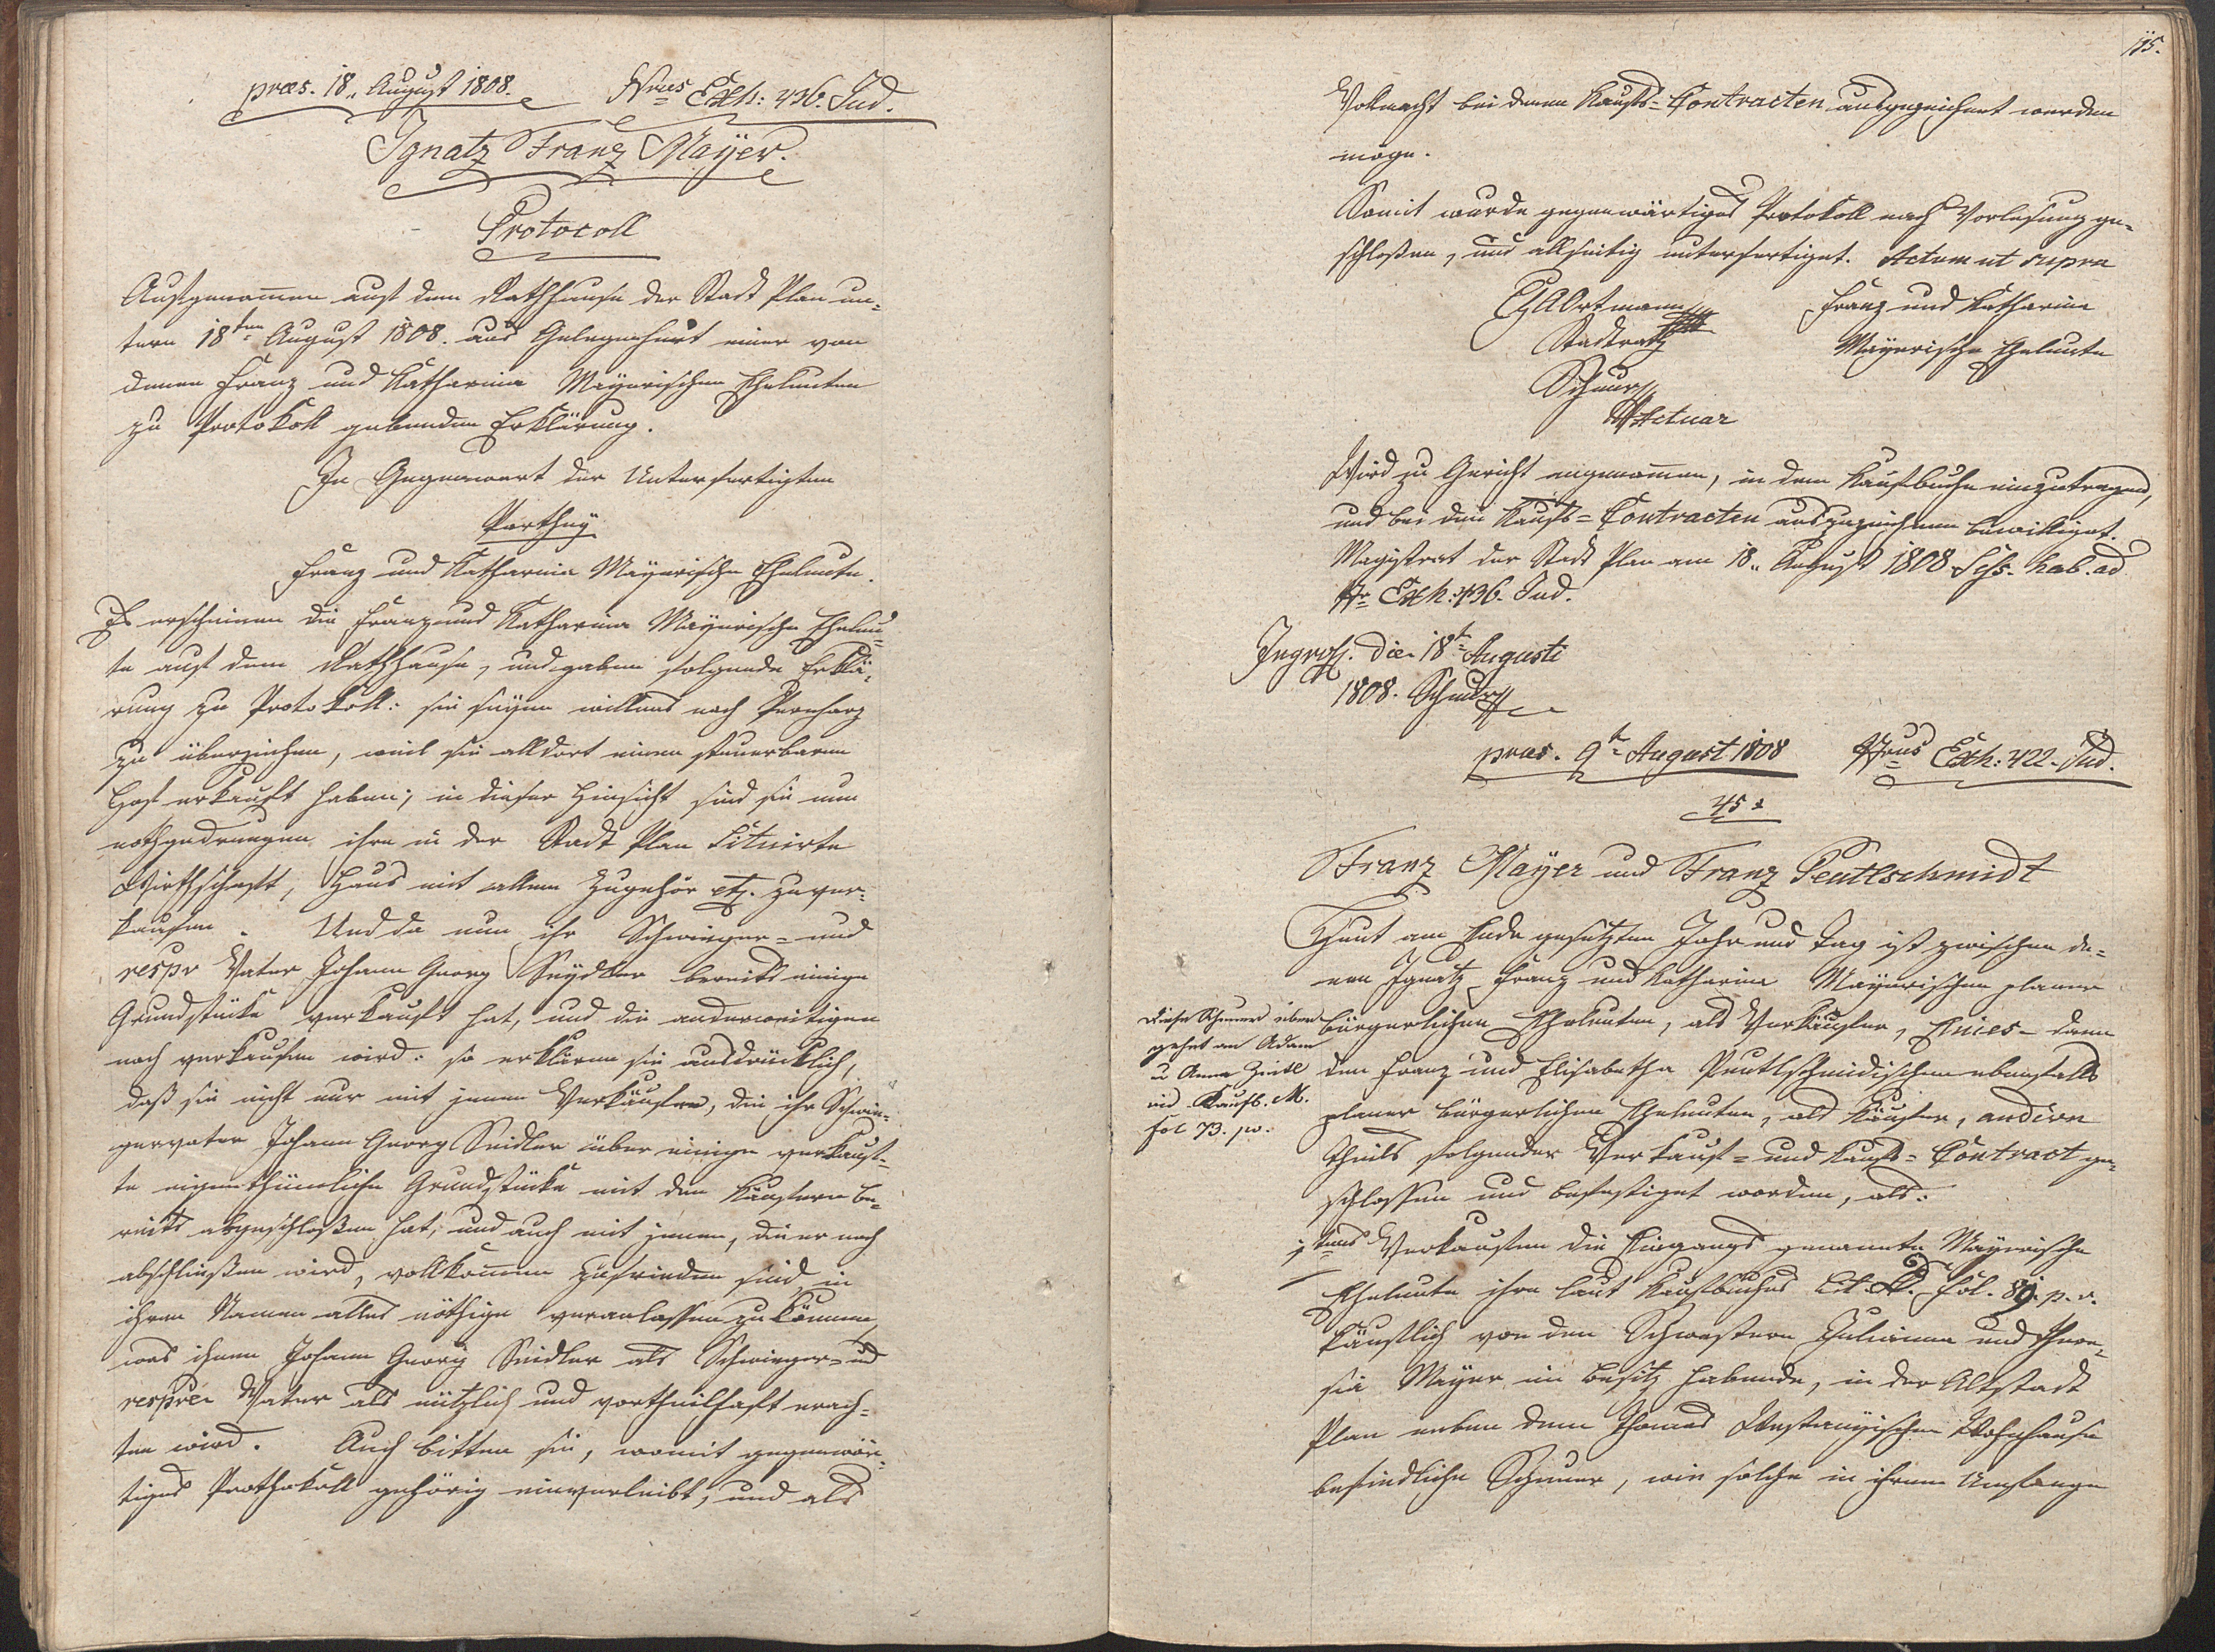 praes. 18. August 1808. Nrus Exh: 436. Jud.
Ignatz Franz Mayer.
Protocoll
Aufgenommen auf dem Rathhause der Stadt Plan un-
term 18ten August 1808. aus Gelegenheit einer von
denen Franz und Katharina Mayerischen Eheleuten
zu Protokoll gebenden Erklärung.
In Gegenwart der Unterfertigten
Parthey
Franz und Katharina Mayerische Eheleute.
Es erscheinen die Franz und Katharina Mayerische Eheleu-
te auf dem Rathhause, und gaben folgende Erklä-
rung zu Protokoll: sie seyen willens nach Pernharz
zu überziehen, weil sie alldort einen steuerbaren
Hof erkauft haben; in dieser Hinsicht sind sie nun
nothgedrungen ihre in der Stadt Plan situirte
Wirthschaft, Haus mit allem Zugehör etz. zu ver-
kaufen. Und da nun ihr Schwieger- und
respe Vater Johann Georg Seydler bereits einige
Grundstücke verkauft hat, und die anderweitigen
noch verkaufen wird: so erklären sie ausdrücklich,
daß sie nicht nur mit jenen Verkäufen, die ihr Schwie-
gervater Johann Georg Seidler über einige verkauf-
te eigenthümliche Grundstücke mit den Käufern be-
reits abgeschloßen hat, und auch mit jenen, die er noch
abschließen wird, vollkommen zufrieden sind, in
ihrem Namen alles nöthige veranlassen zu können,
was ihnen Johann Georg Seidler als Schwieger- und
respve Vater als nützlich und vortheilhaft erach-
ten wird. Auch bitten sie, womit gegenwär-
tiges Prothokoll gehörig einverleibt, und als
175.
Vollmacht bei denen Kaufs-Contracten ausgezeichnet werden
möge.
Somit wurde gegenwärtiges Protokoll nach Vorlesung ge-
schloßen, und allseitig unterfertiget. Actum ut supra
Ortmann
Stadtrath
Franz und Katharina
Mayerische Eheleute
Scheurer
Actuar
Wird zu Gericht angenommen, in dem Kaufbuche einzutragen,
und bei den Kaufs-Contracten auszuzeichnen bewilliget.
Magistrat der Stadt Plan am 18. August 1808 Sess. hab. ad
Nr Exh: 436. Jud.
Ingross. die 18t Augusti
1808. Scheurer
praes. 9t August 1808 Nrus Exh: 422. Jud.
45x
Franz Mayer und Franz Peutlschmidt
Heut am Ende gesetzten Jahr und Tag ist zwischen de-
nen Ignatz Franz und Katharina Mayerischen planer
bürgerlichen Eheleuten, als Verkäufer, Eines- dann
den Franz und Elisabetha Peutlschmidischen ebenfalls
planer bürgerlichen Eheleuten, als Käufer, andern
Theils folgender Verkauf- und Kaufs-Contract ge-
schlossen und befestiget worden, als:
Diese Scheuer über
gehet an Adam
u Anna Zeitl
vid. Kaufb. M.
fol 73. pv.
1tens Verkaufen die Eingangs genannte Mayerische
Eheleute ihre laut Kaufbuches Lit. D. Fol. 89. p. v.
käuflich von den Schwestern Julianna und There-
sia Mayer im Besitz habende, in der Altstadt
Plan neben dem Thomas Wohnhause
befindliche Scheuer, wie solche in ihrem Umfange